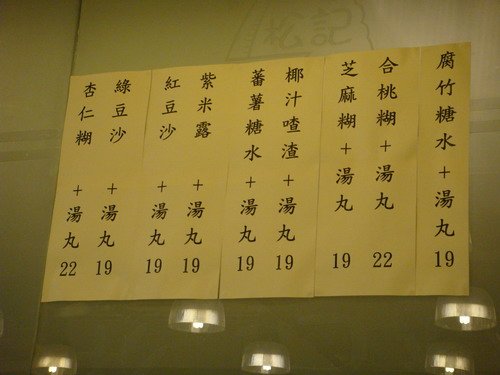 松記
腐竹糖水+湯丸 19
合桃糊+湯丸 22
芝麻糊+湯丸 19
椰汁喳渣+湯丸 19
蕃薯糖水+湯丸 19
紫米露+湯丸 19
紅豆沙+湯丸 19
綠豆沙+湯丸 19
杏仁糊+湯丸 22